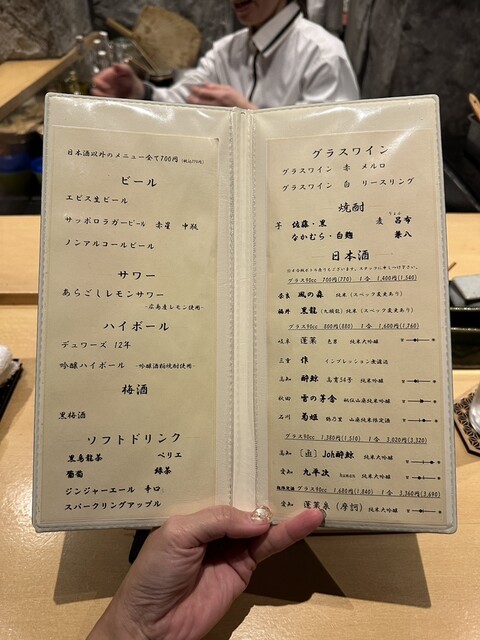 日本酒以外のメニュー全て700円(税込770円)
ビール
エビス生ビール
サッポロラガービール 赤星 中瓶
ノンアルコールビール
サワー
あらごしレモンサワー
-広島産レモン使用-
ハイボール
デュワーズ 12年
吟醸ハイボール -吟醸酒粕焼酎使用-
梅酒
黒梅酒
ソフトドリンク
黒烏龍茶 ペリエ
葡萄 緑茶
ジンジャーエール 辛口
スパークリングアップル
グラスワイン
グラスワイン 赤 メルロ
グラスワイン 白 リースリング
焼酎
芋 佐藤・黒 麦 呂布
なかむら・白麹 兼八
日本酒
グラス90cc 700円(770) 1合 1,400円(1,540)
奈良 風の森 純米(スペック変更あり)
福井 黒龍(九頭龍) 純米(スペック変更あり)
グラス90cc 800円(880) 1合 1,600円(1,760)
岐阜 蓬莱 色男 純米大吟醸
三重 作 インプレッション無濾過
高知 酔鯨 高育54号 純米吟醸
秋田 雪の茅舎 秘伝山廃純米吟醸
石川 菊姫 鶴乃里 山廃純米限定酒
グラス90cc 1,380円(1,510) 1合 3,020円(3,320)
高知 Joh酔鯨 純米大吟醸
愛知 九平次 human 純米大吟醸
グラス90cc 1,680円(1,840) 1合 3,360円(3,690)
愛知 蓬莱泉(摩訶) 純米大吟醸